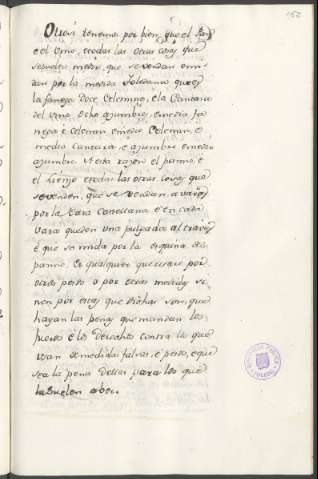 162
Otrosi tenemos por bien, que el Pan
e el vino, e todas las otras cosas que
se suelen medir, que se vendan e mi-
dan por la medida Toledana que es
la fanega doce Celemines, e la Cantara
del vino, ocho azumbres, e media fa
nega e celemin e medio Celemin, e
media Cantara, e azumbre e media
azumbre. Et esta razon el panno, e
el Lienzo e todas las otras cosas que
se venden, que se vendan a varas
por la Vara Castellana e en cada
vara que den una pulgada al traves
e que se mida por la esquina del
panno. Et qualquier que usare por
otros pesos o por otras medidas si
non por estas que dichas son, que
hayan las penas que mandan los
fueros e los derechos contra los que
usan de medidas falsas, e pesos, e que
sea la pena dellas para los que
la suelen aber.